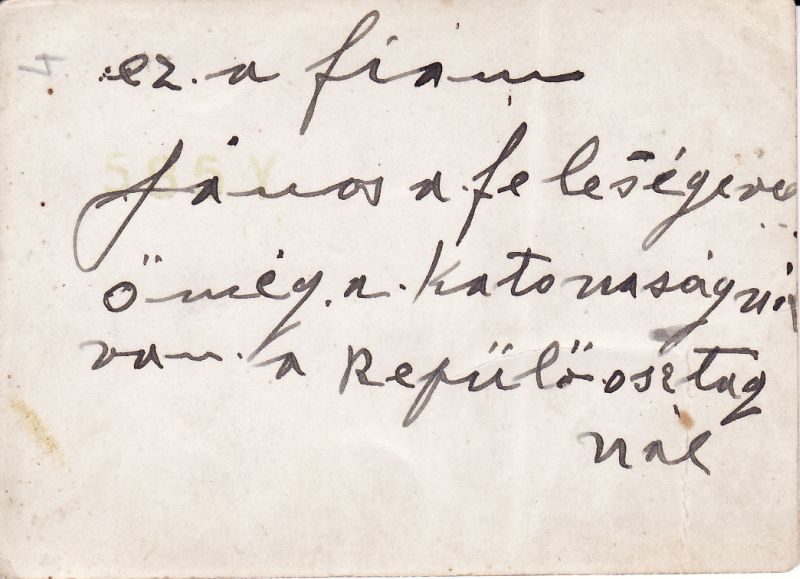 ez. a fiam
János a. feleségével
ő még. a. Katonaságnál
van. a Repülő osztag
nál
5805 Y